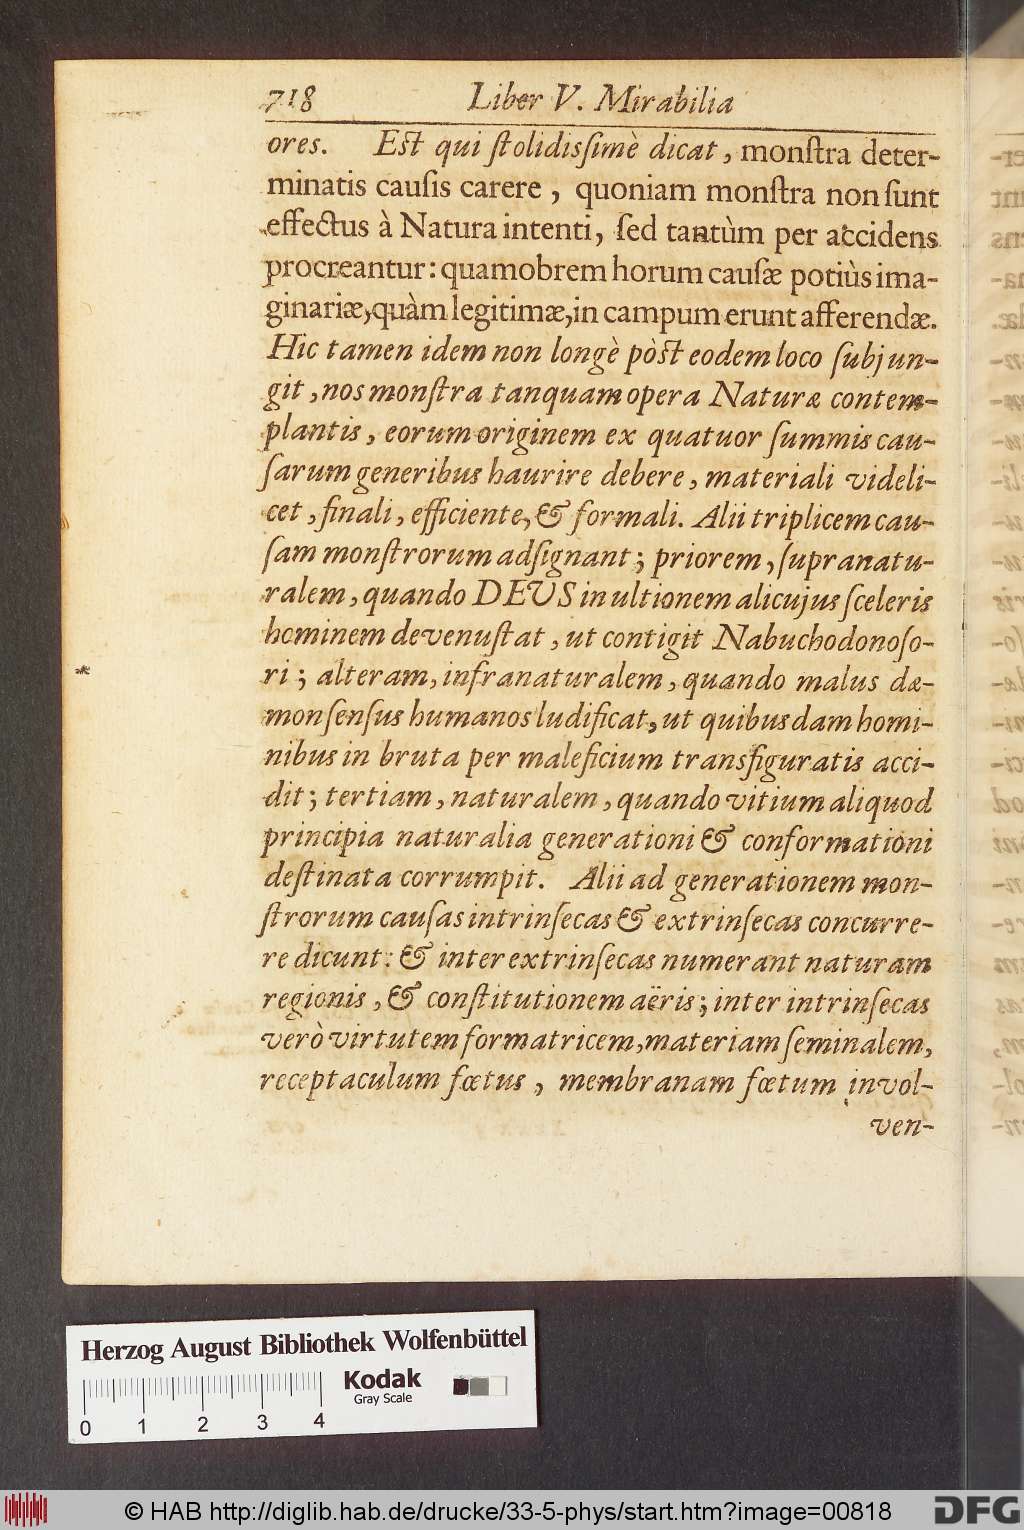 718 Liber V. Mirabilia
ores. Est qui ſtolidisſimè dicat, monſtra deter-
minatis cauſis carere, quoniam monſtra non ſunt
effectus à Natura intenti, ſed tantùm per accidens
procreantur: quamobrem horum cauſæ potiùs ima-
ginariæ, quàm legitimæ, in campum erunt afferendæ.
Hic tamen idem non longè pòst eodem loco ſubjun-
git, nos monſtra tanquam opera Naturæ contem-
plantis, eorum originem ex quatuor ſummis cau-
ſarum generibus haurire debere, materiali videli-
cet, finali, efficiente, & formali. Alii triplicem cau-
ſam monſtrorum adſignant; priorem, ſupranatu-
ralem, quando DEUS in ultionem alicujus ſceleris
hominem devenuſtat, ut contigit Nabuchodonoſo-
ri; alteram, infranaturalem, quando malus dæ-
mon ſenſus humanos ludificat, ut quibusdam homi-
nibus in bruta per maleficium transfiguratis acci-
dit; tertiam, naturalem, quando vitium aliquod
principia naturalia generationi & conformationi
deſtinata corrumpit. Alii ad generationem mon-
ſtrorum cauſas intrinſecas & extrinſecas concurre-
re dicunt: & inter extrinſecas numerant naturam
regionis, & conſtitutionem aëris; inter intrinſecas
verò virtutem formatricem, materiam ſeminalem,
receptaculum fœtus, membranam fœtum invol-
ven-
Herzog August Bibliothek Wolfenbüttel
Kodak
Gray Scale
0 1 2 3 4
© HAB http://diglib.hab.de/drucke/33-5-phys/start.htm?image=00818
DFG